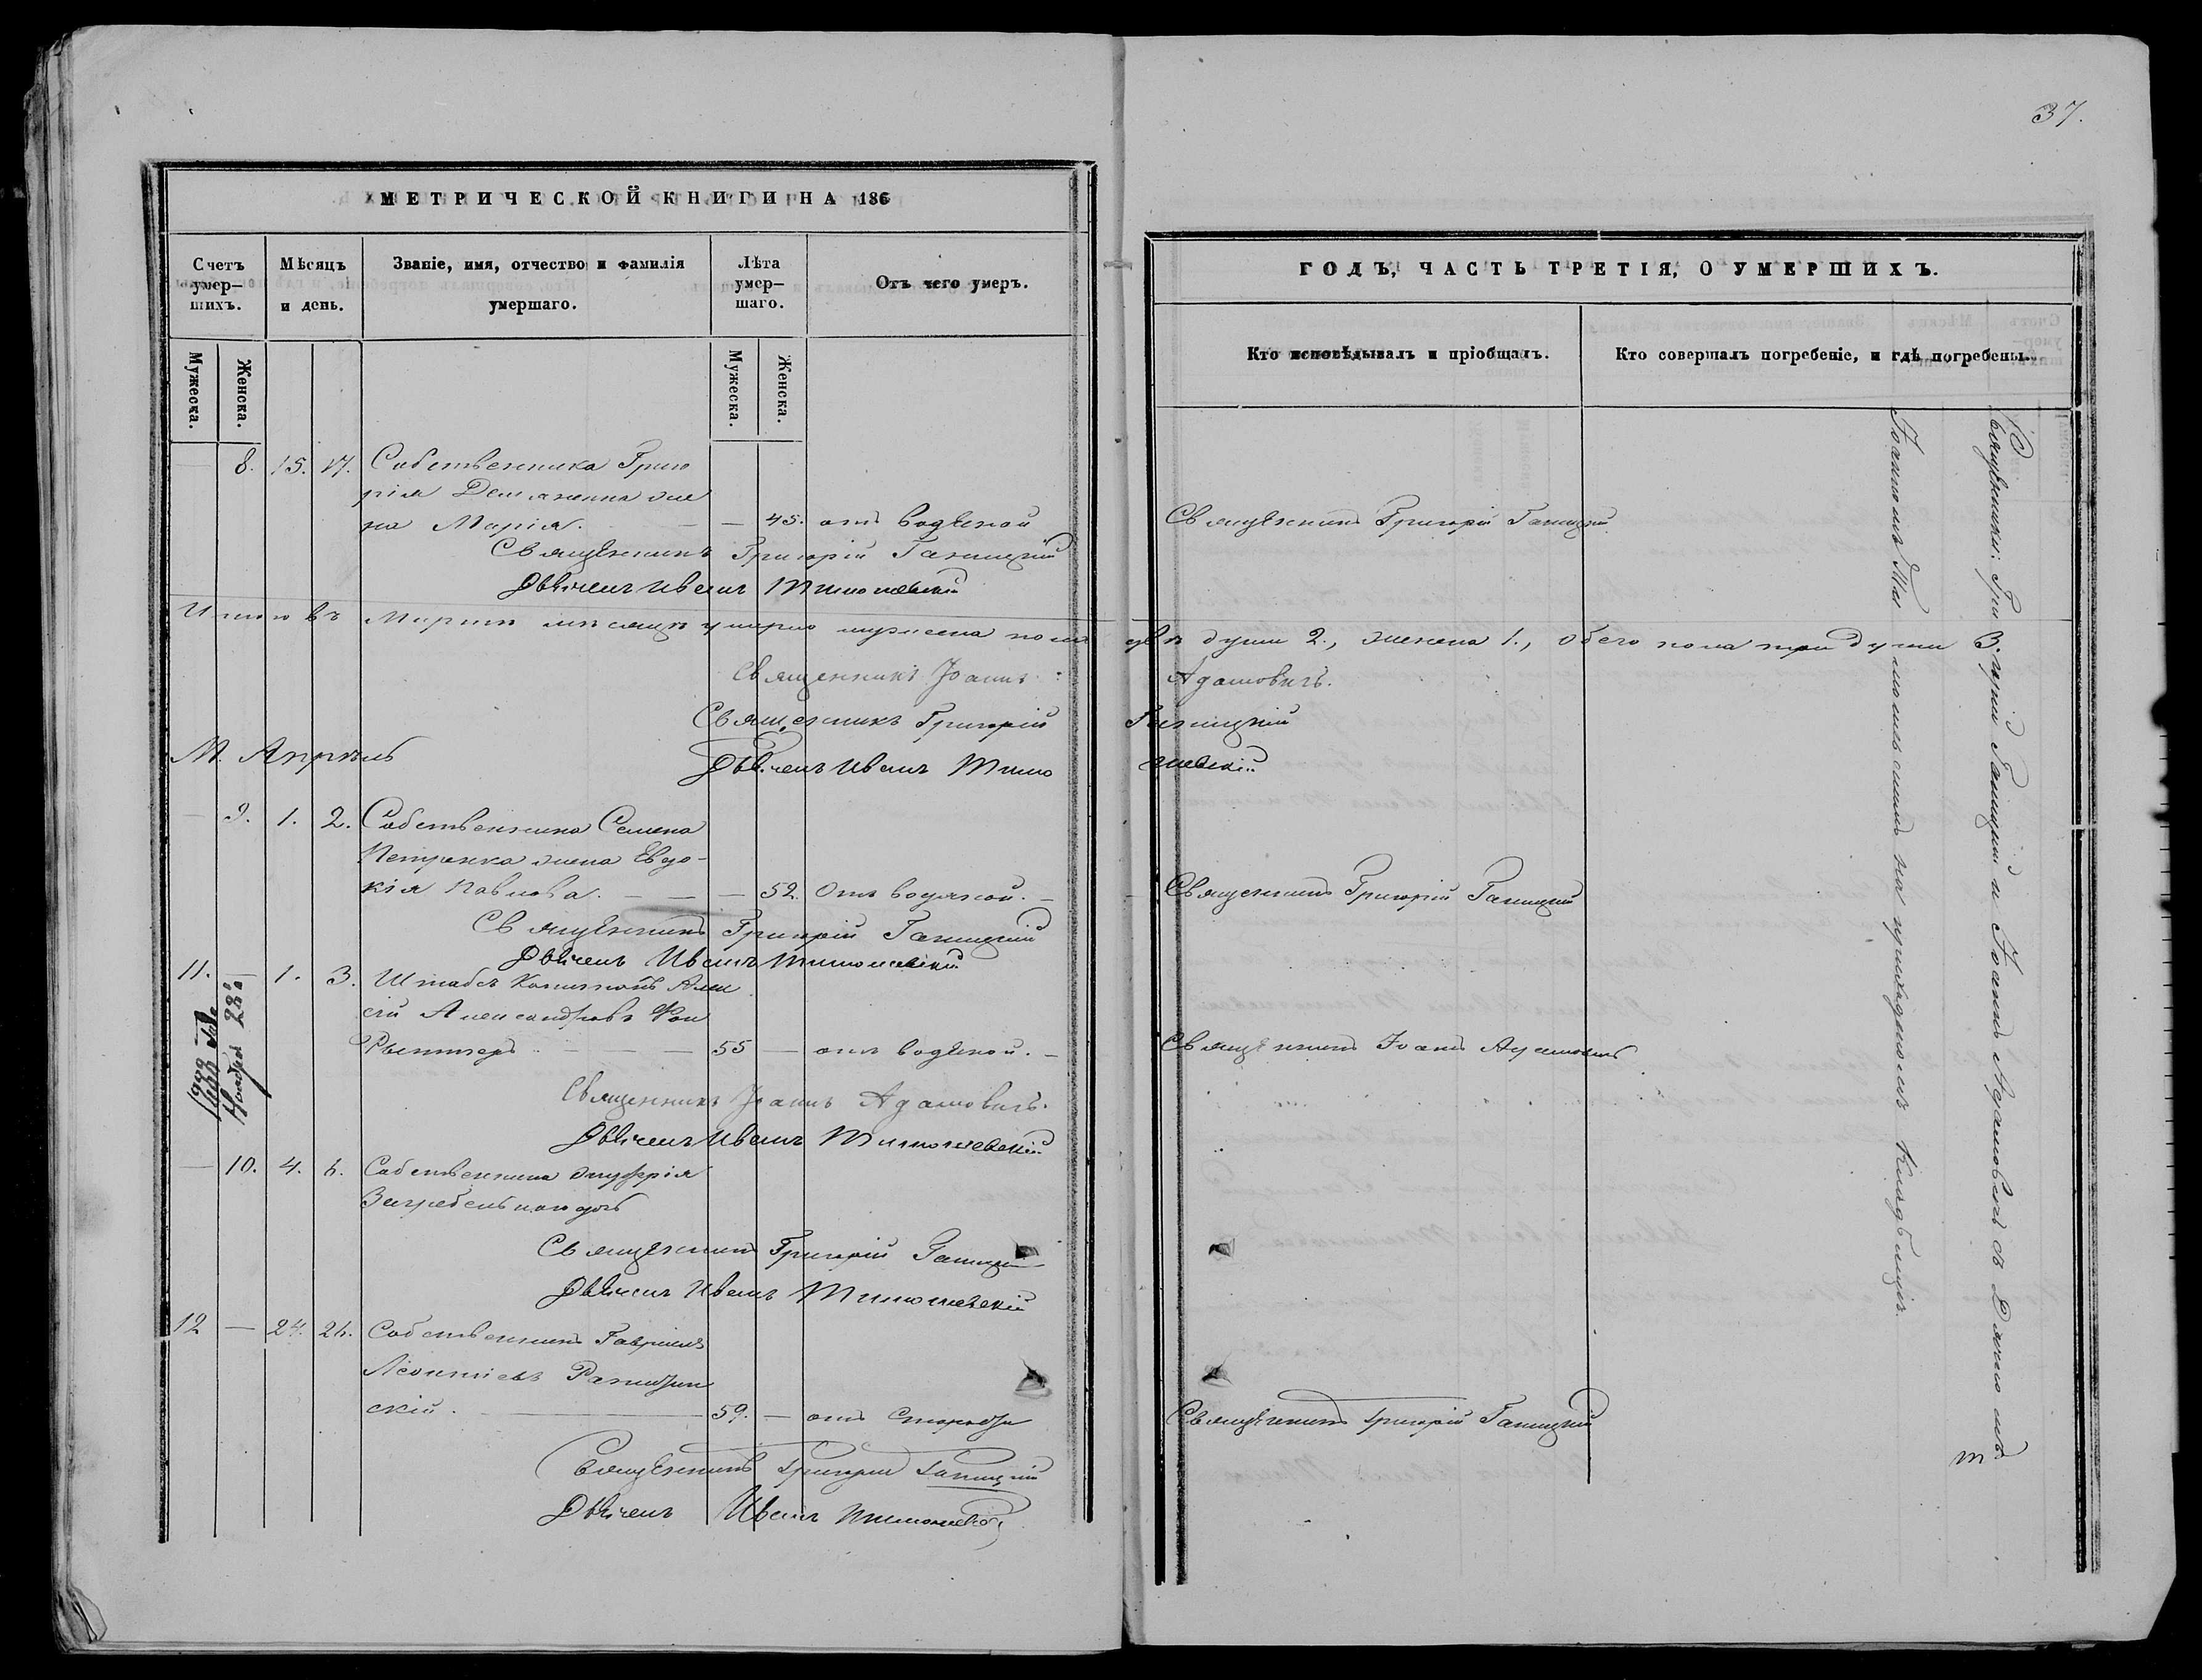 37.
МЕТРИЧЕСКОЙ КНИГИ НА 186
Счетъ умер-шихъ.
Мѣсяцъ и день.
Званіе, имя, отчество и фамилія умершаго.
Лѣта умер-шаго.
Отъ чего умеръ.
Мужеска.
Женска.
Мужеска.
Женска.
8. 15. 17. Собственника Григо
рія жe
на Марія. — — 45. отъ водяной
Священникъ Григорій Ганицкій
Дьячекъ Иванъ Тимошевскій
Итого въ Мартѣ мѣсяцѣ умерло мужеска пола
Священникъ Іоаннъ
Священникъ Григорій
М. Апрѣль
Дьячекъ Иванъ Тимо
— 9. 1. 2. Собственника Семена
Петренка жена Евдо-
кія Павлова. — — — 52. Отъ водяной. —
Священникъ Григорій Ганицкій
Дьячекъ Иванъ Тимошевскій
11. — 1. 3. Штабсъ Капитанъ Алек
сѣй Александровъ Фон
— — — 55 — отъ водяной. —
Ноября 28
Священникъ Іоаннъ Адамовичъ.
Дьячекъ Иванъ Тимошевскій
— 10. 4. 6. Собственника Онуфрія
дочь
Священникъ Григорій Ганицкій
Дьячекъ Иванъ Тимошевскій
12 — 24. 26. Собственникъ Гавріилъ
Леонтіевъ
скій. — 59. — отъ
Священникъ Григорій Ганицкій
Дьячекъ Иванъ Тимошевскій
ГОДЪ, ЧАСТЬ ТРЕТІЯ, О УМЕРШИХЪ.
Кто исповѣдывалъ и пріобщалъ.
Кто совершалъ погребеніе, и гдѣ погребены.
Священникъ Григорій Ганицкій
двѣ души 2., женска 1., обего пола три души 3.
Адамовичъ.
Ганицкій
шевскій
Священникъ Григорій Ганицкій
Священникъ Іоанъ Адамовичъ
Священникъ Григорій Ганицкій
Священники: Гри
горій Ганицкій и Іоаннъ Адамовичъ съ Дьячкомъ
Іоанномъ Ти
мошевскимъ на приходскомъ Кладбищѣ.